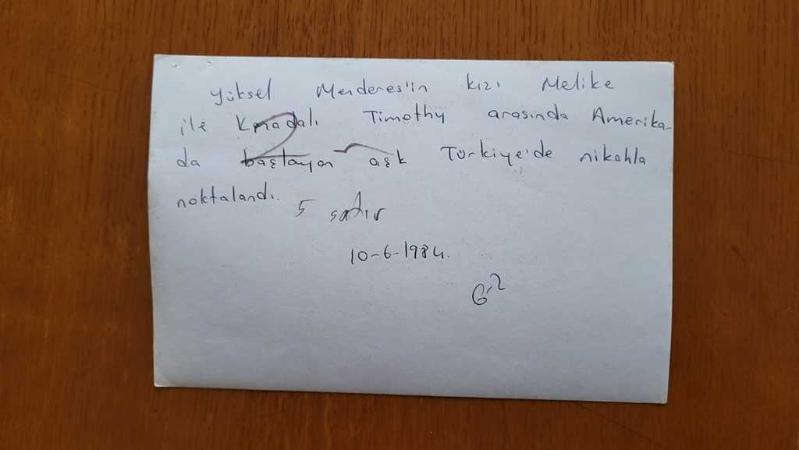 Yüksel Menderes'in kızı Melike
ile Kanadalı Timothy arasında Amerika-
da başlayan aşk Türkiye'de nikahla
noktalandı.
5 satır
10-6-1984.
6,2